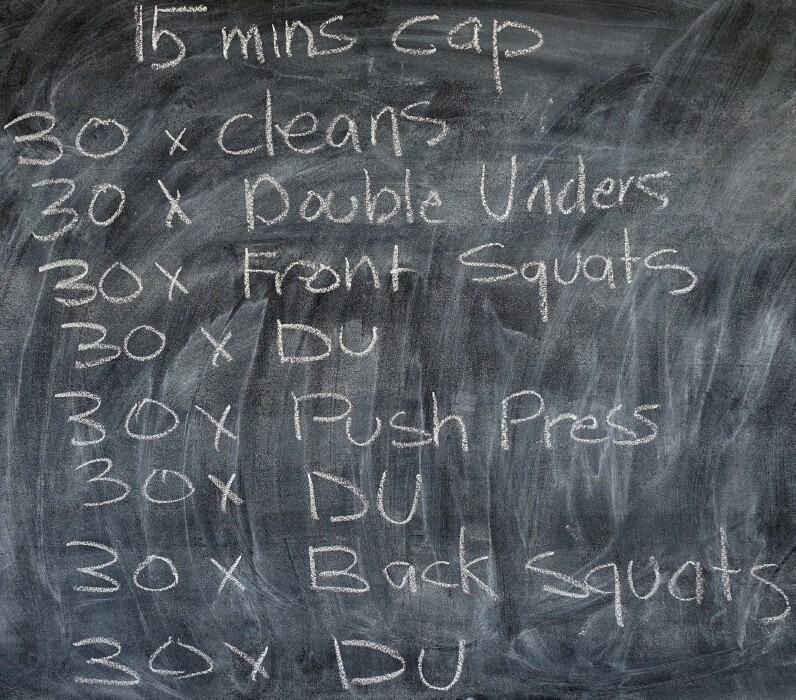 15 mins cap
30 x cleans
30 x Double Unders
30 x Front Squats
30 x DU
30 x Push Press
30 x DU
30 x Back Squats
30 x DU